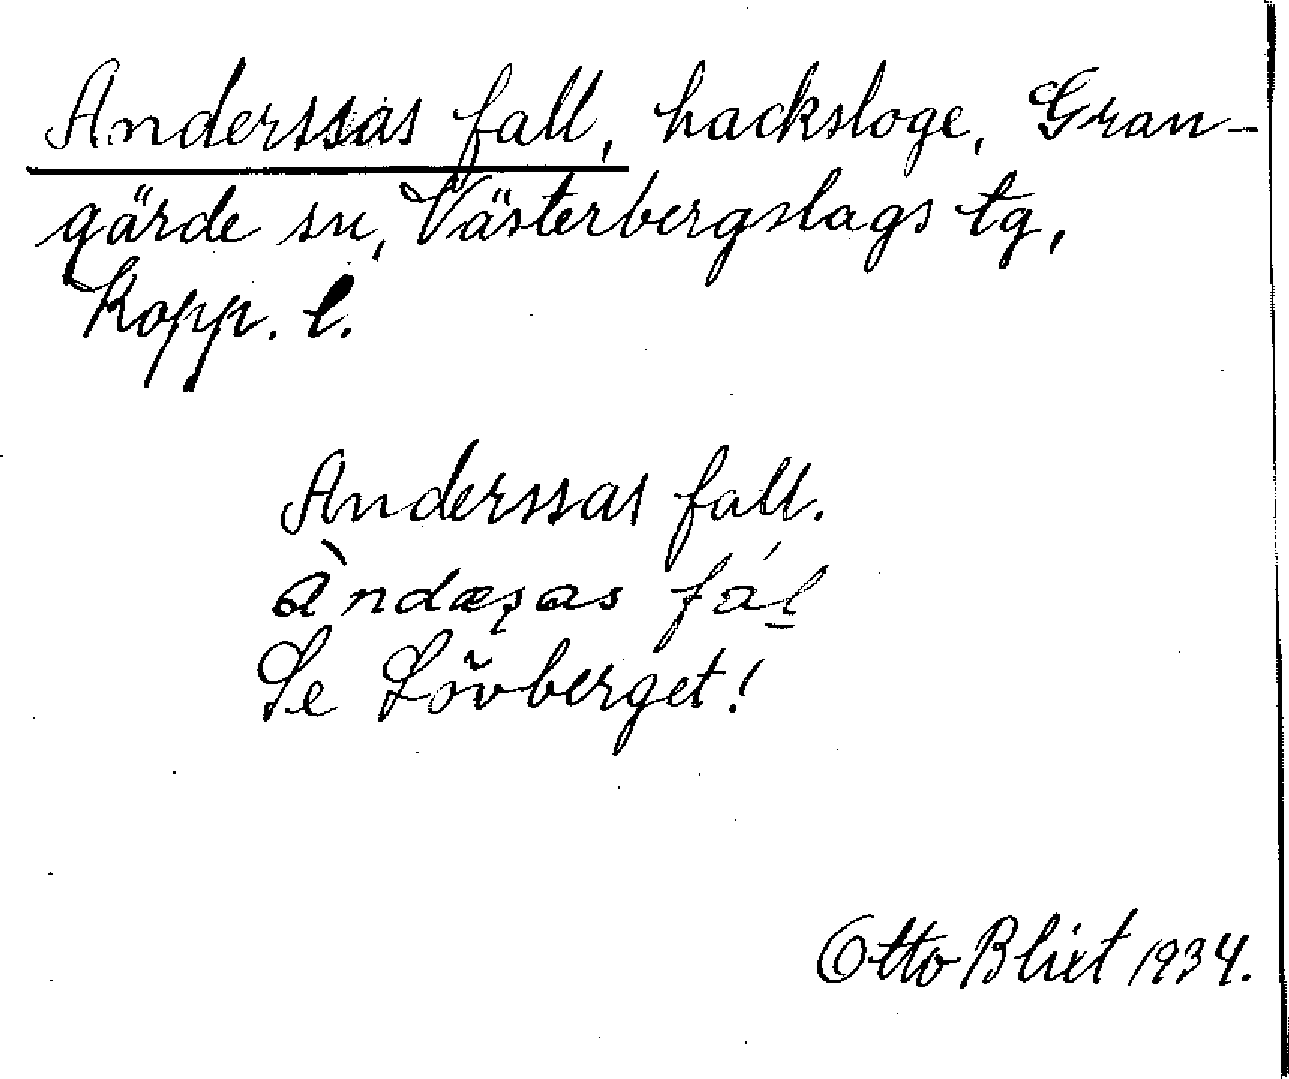 Anderssas fall, hacksloge, Gran-
gärde sn, Västerbergslags tg,
Kopp. l.
Anderssas fall.
àndæșas fáḻ
Se Lövberget!
Otto Blixt 1934.